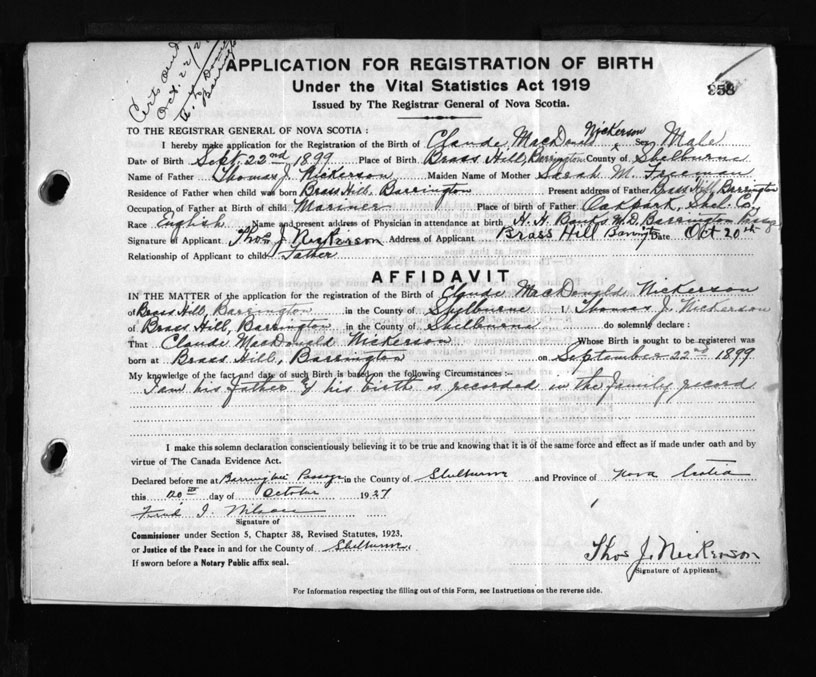 Certs and
Oct. 22/2
Barrington
APPLICATION FOR REGISTRATION OF BIRTH
958
Under the Vital Statistics Act 1919
Issued by The Registrar General of Nova Scotia.
TO THE REGISTRAR GENERAL OF NOVA SCOTIA:
I hereby make application for the Registration of the Birth of Claude MacDonald Nickerson Sex Male
Date of Birth Sept. 22nd 1899 Place of Birth Brass Hill, Barrington County of Shelburne
Name of Father Thomas J. Nickerson Maiden Name of Mother Sarah M. Freeman
Residence of Father when child was born Brass Hill, Barrington Present address of Father Brass Hill, Barrington
Occupation of Father at Birth of child Mariner Place of birth of Father Oakpark, Shel. Co.,
Race English Name and present address of Physician in attendance at birth H. H. Banks M.D. Barrington Passage
Signature of Applicant Thos J Nickerson Address of Applicant Brass Hill Barrington Date Oct 20th
Relationship of Applicant to child Father
AFFIDAVIT
IN THE MATTER of the application for the registration of the Birth of Claude MacDonald Nickerson
of Brass Hill, Barrington in the County of Shelburne I Thomas J. Nickerson
of Brass Hill, Barrington in the County of Shelburne do solemnly declare:
That Claude MacDonald Nickerson Whose Birth is sought to be registered was
born at Brass Hill, Barrington on September 22nd 1899
My knowledge of the fact and date of such Birth is based on the following Circumstances:—
I am his father & his birth is recorded in the family record
I make this solemn declaration conscientiously believing it to be true and knowing that it is of the same force and effect as if made under oath and by
virtue of The Canada Evidence Act.
Declared before me at Barrington Passage in the County of Shelburne and Province of Nova Scotia
this 20th day of October 1927
Signature of
Commissioner under Section 5, Chapter 38, Revised Statutes, 1923.
or Justice of the Peace in and for the County of Shelburne.
If sworn before a Notary Public affix seal.
Thos J. Nickerson
Signature of Applicant.
For Information respecting the filling out of this Form, see Instructions on the reverse side.